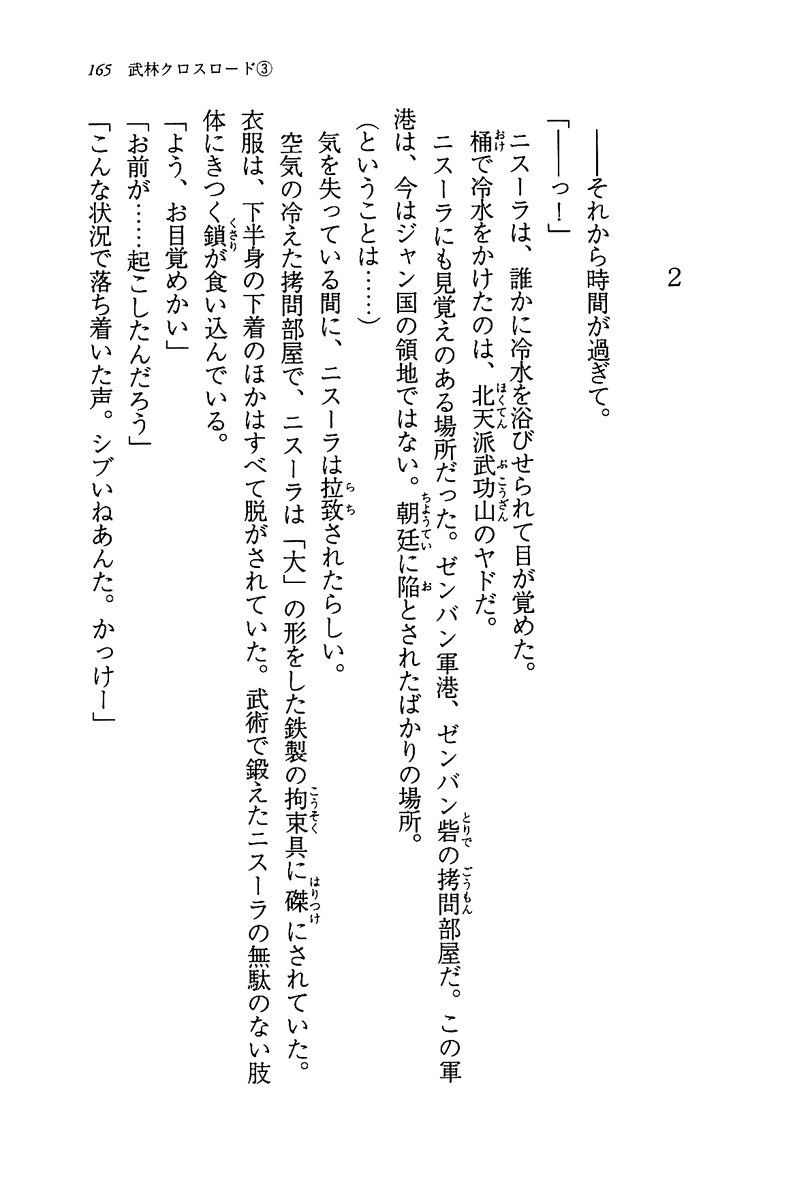 165 武林クロスロード③
2
――それから時間が過ぎて。
「――っ！」
ニスーラは、誰かに冷水を浴びせられて目が覚めた。
桶で冷水をかけたのは、北天派武功山のヤドだ。
ニスーラにも見覚えのある場所だった。ゼンバン軍港、ゼンバン砦の拷問部屋だ。この軍
港は、今はジャン国の領地ではない。朝廷に陥とされたばかりの場所。
（ということは……）
気を失っている間に、ニスーラは拉致されたらしい。
空気の冷えた拷問部屋で、ニスーラは「大」の形をした鉄製の拘束具に磔にされていた。
衣服は、下半身の下着のほかはすべて脱がされていた。武術で鍛えたニスーラの無駄のない肢
体にきつく鎖が食い込んでいる。
「よう、お目覚めかい」
「お前が……起こしたんだろう」
「こんな状況で落ち着いた声。シブいねあんた。かっけー」